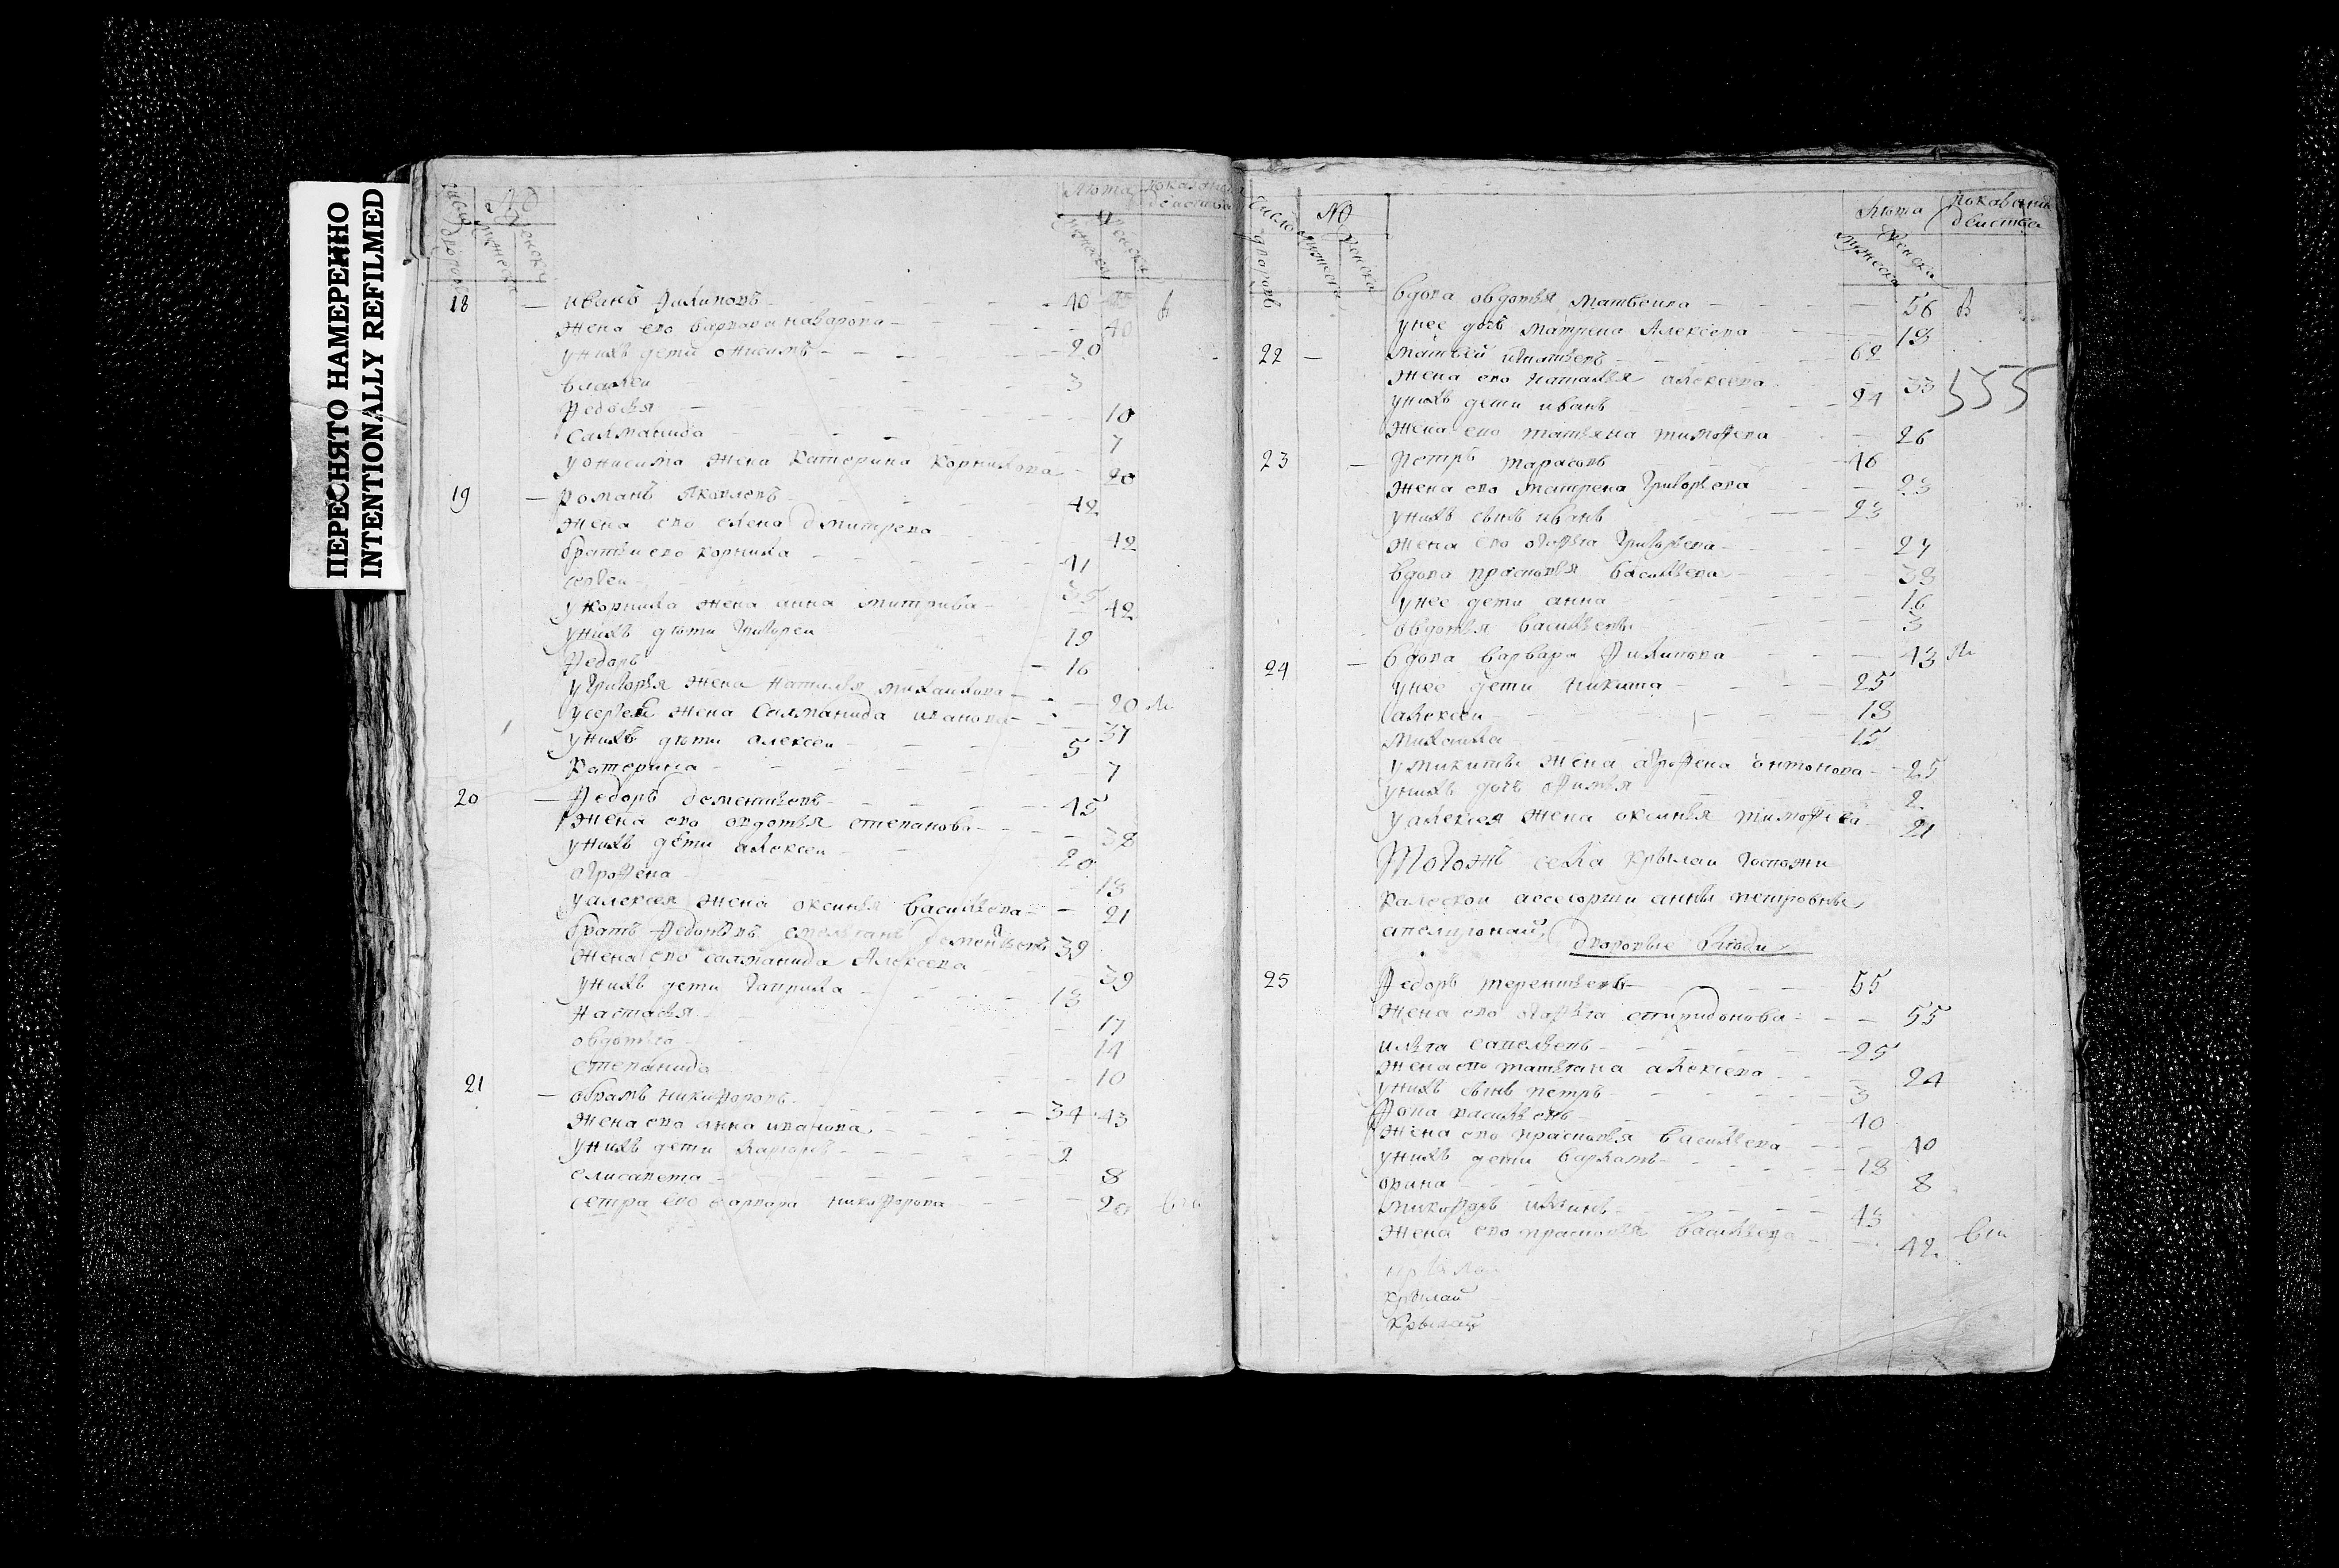 ПЕРЕСНЯТО НАМЕРЕННО
INTENTIONALLY REFILMED
№
лѣта показание действа
18 — иванъ Филиповъ — 40
жена ево варвара 40
унихъ дети онисимъ — 20
власей 3
Федосья — 10
саламанида 7
уонисима жена катерина корнилова — 20
19 — романъ яковлевъ 42
жена ево елена дмитрева 42
братьи ево корнила — 41
сергеи 35
укорнила жена анна митрива 42
унихъ дѣти григореи 19
Федоръ 16
угригорья жена наталья михаилова — 20
усергея жена саламанида иванова — 37
унихъ дѣти алексеи 5
катерина 7
20 — Федоръ дементьевъ 45
жена ево овдотья степанова — 38
унихъ дети алексеи 20
огрофена 13
уалексея жена оксинья васильева — 21
братъ Федоровъ дементьевъ 39
жена ево саламанида алексева 39
унихъ дети гаврила — 13
настасья 17
овдотья 14
степанида 10
21 — обрамъ никифоровъ — 34
жена ево анна иванова 43
унихъ дети — 2
елисавета 8
сетра ево варвара никифорова 20
число дворовъ № мужеска женска лѣта мужеска женска показание действа
вдова овдотья матвеива 56
унее дочь матрена алексева 13
22 — матвей игнатьевъ 62
жена ево наталья алексева 53
355
унихъ дети иванъ 24
жена ево татьяна тимофева 26
23 — Петръ тарасовъ 46
жена ево матрена григорьева 23
унихъ сынъ иванъ 23
жена ево огафья григорьева — 27
вдова прасковья васильева 33
унее дети анна 16
овдотья васильевы 3
24 — вдова варвара Филипова 43
унее дети никита 25
алексеи 18
михаила 15
уникиты жена огрофена онтонова 25
унихъ дочь офимья 2
уалексея жена оксинья тимофева 21
Тогожъ села крылаи госпожи
калеской асесорши анны петровны
дворовые люди
25 Федоръ терентьевъ — 55
жена ево огафья спиридонова — 55
илья савельевъ — 25
жена ево татьяна алексева 24
унихъ сынъ петръ 3
Фома васильевъ 40
жена ево прасковья васильева 40
унихъ дети варламъ 18
орина 8
никифоръ ильинъ 43
жена ево прасковья васильева 42
крылай
крылай